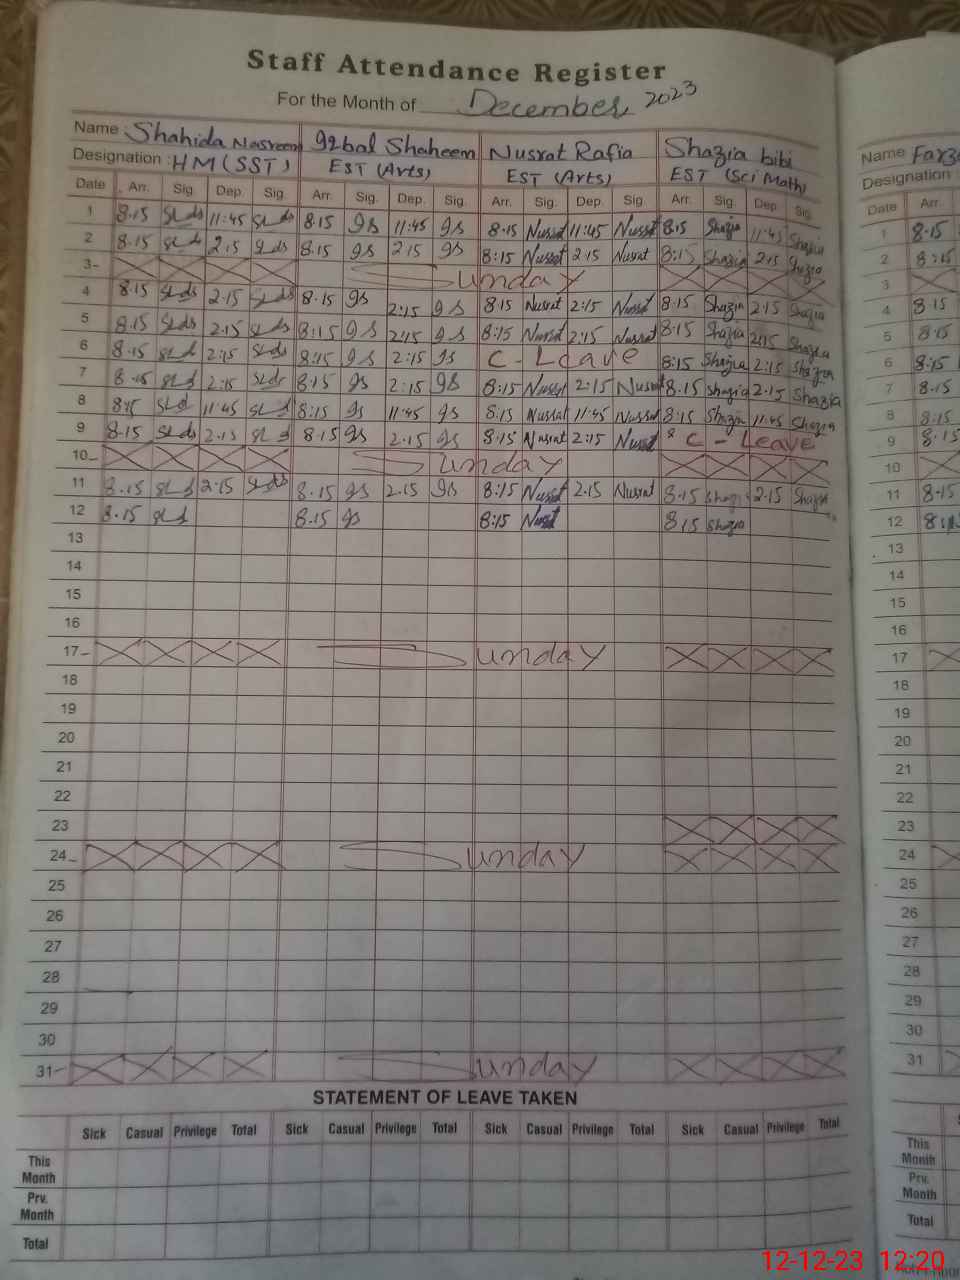 Staff Attendance Register
For the Month of December 2023
Name Shahida Nasreen Iqbal Shaheen Nusrat Rafia Shazia bibi Name
Designation : HM (SST) EST (Arts) EST (Arts) EST (Sci Math) Designation :
Date Arr. Sig. Dep. Sig. Arr. Sig. Dep. Sig. Arr. Sig. Dep. Sig. Arr. Sig. Dep. Sig. Date Arr.
1 8.15 11:45 8.15 9s 11:45 9s 8.15 Nusrat 11:45 Nusrat 8.15 Shazia 11:45 Shazia 1 8.15
2 8.15 2.15 8.15 9s 2 15 9s 8:15 Nusrat 2 15 Nusrat 8:15 Shazia 2.15 Shazia 2 8:15
3 Sunday 3
4 8.15 2.15 8.15 9s 2:15 9s 8:15 Nusrat 2:15 Nusrat 8.15 Shazia 2.15 Shazia 4 8 15
5 8.15 2.15 8:15 9s 2:15 9s 8:15 Nusrat 2:15 Nusrat 8:15 Shazia 2:15 Shazia 5 8.15
6 8.15 2:15 8:15 9s 2:15 9s C - Leave 8:15 Shazia 2:15 Shazia 6 8:15
7 8.15 2:15 8:15 9s 2:15 9s 8:15 Nusrat 2:15 Nusrat 8.15 Shazia 2.15 Shazia 7 8.15
8 8:15 11:45 8:15 9s 11:45 9s 8:15 Nusrat 11:45 Nusrat 8:15 Shazia 11:45 Shazia 8 8.15
9 8.15 2.15 8.15 9s 2.15 9s 8:15 Nusrat 2:15 Nusrat C - Leave 9 8.15
10 Sunday 10
11 8.15 2:15 8.15 9s 2.15 9s 8:15 Nusrat 2.15 Nusrat 8.15 Shazia 2.15 Shazia 11 8.15
12 8.15 8.15 9s 8:15 Nusrat 8 15 Shazia 12
13 13
14 14
15 15
16 16
17 Sunday 17
18 18
19 19
20 20
21 21
22 22
23 23
24 Sunday 24
25 25
26 26
27 27
28 28
29 29
30 30
31 Sunday 31
STATEMENT OF LEAVE TAKEN
Sick Casual Privilege Total Sick Casual Privilege Total Sick Casual Privilege Total Sick Casual Privilege Total
This Month This Month
Prv. Month Prv. Month
Total Total
12-12-23 12:20